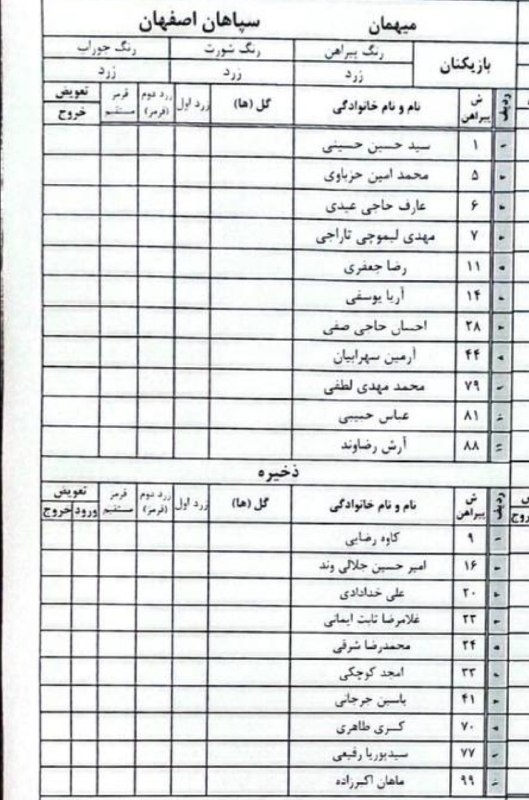 میهمان سپاهان اصفهان
بازیکنان رنگ پیراهن رنگ شورت رنگ جوراب
زرد زرد زرد
ردیف ش پیراهن نام و نام خانوادگی گل (ها) زرد اول زرد دوم (قرمز) قرمز مستقیم تعویض
خروج
۱ سید حسین حسینی
۵ محمد امین حزباوی
۶ عارف حاجی عیدی
۷ مهدی لیموچی تاراجی
۱۱ رضا جعفری
۱۴ آریا یوسفی
۲۸ احسان حاجی صفی
۴۴ آرمین سهرابیان
۷۹ محمد مهدی لطفی
۸۱ عباس حبیبی
۸۸ آرش رضاوند
ذخیره
ردیف ش پیراهن نام و نام خانوادگی گل (ها) زرد اول زرد دوم (قرمز) قرمز مستقیم تعویض
ورود خروج
۹ کاوه رضایی
۱۶ امیر حسین جلالی وند
۲۰ علی خدادادی
۲۲ غلامرضا ثابت ایمانی
۲۴ محمدرضا شرقی
۳۳ امجد کوچکی
۴۱ یاسین جرجانی
۷۰ کسری طاهری
۷۷ سیدپوریا رفیعی
۹۹ ماهان اکبرزاده